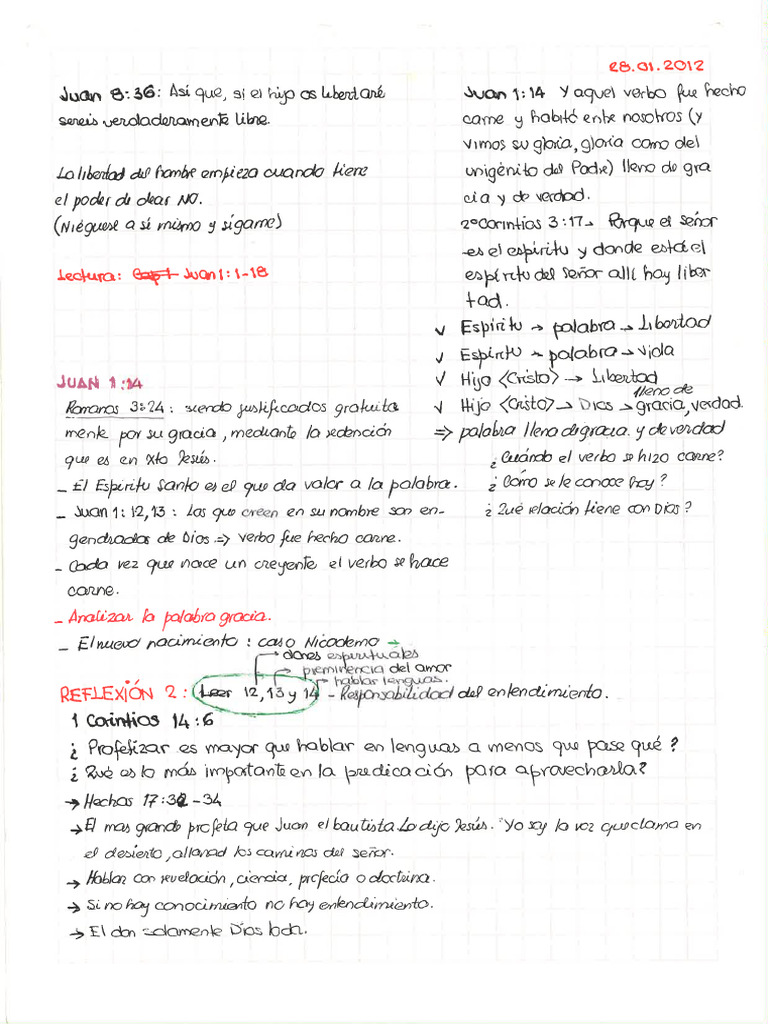 28.01.2012
Juan 8:36: Así que, si el hijo os libertaré
sereis verdaderamente libre.
La libertad del hombre empieza cuando tiene
el poder de decir NO.
(Niéguese a sí mismo y sígame)
Lectura: Cap 1 Juan 1:1-18
Juan 1:14 Y aquel verbo fue hecho
carne y habitó entre nosotros (y
vimos su gloria, gloria como del
unigénito del Padre) lleno de gra
cia y de verdad.
2º Corintios 3:17→ Porque el señor
es el espíritu y donde está el
espíritu del señor allí hay liber
tad.
✓ Espíritu → palabra → Libertad
✓ Espíritu → palabra → vida
✓ Hijo <Cristo> → Libertad
lleno de
✓ Hijo <Cristo> → Dios → gracia, verdad.
⇒ palabra llena de gracia y de verdad
¿Cuándo el verbo se hizo carne?
¿Cómo se le conoce hoy?
¿Qué relación tiene con Dios?
JUAN 1:14
Romanos 3:24: siendo justificados gratuita
mente por su gracia, mediante la redención
que es en Xto Jesús.
- El Espíritu Santo es el que da valor a la palabra.
- Juan 1:12,13: Los que creen en su nombre son en-
gendrados de Dios ⇒ verbo fue hecho carne.
- Cada vez que nace un creyente el verbo se hace
carne.
- Analizar la palabra gracia.
- El nuevo nacimiento: caso Nicodemo →
→ dones espirituales
→ preminencia del amor
→ hablar lenguas.
REFLEXIÓN 2: Leer 12,13 y 14 - Responsabilidad del entendimiento.
1 Corintios 14:6
¿Profetizar es mayor que hablar en lenguas a menos que pase qué?
¿Qué es lo más importante en la predicación para aprovecharla?
→ Hechos 17:32-34
→ El mas grande profeta que Juan el bautista Lo dijo Jesús. "Yo soy la voz que clama en
el desierto, allanad los caminos del señor.
→ Hablar con revelación, ciencia, profecía o doctrina.
→ Si no hay conocimiento no hay entendimiento.
→ El don solamente Dios lo da.